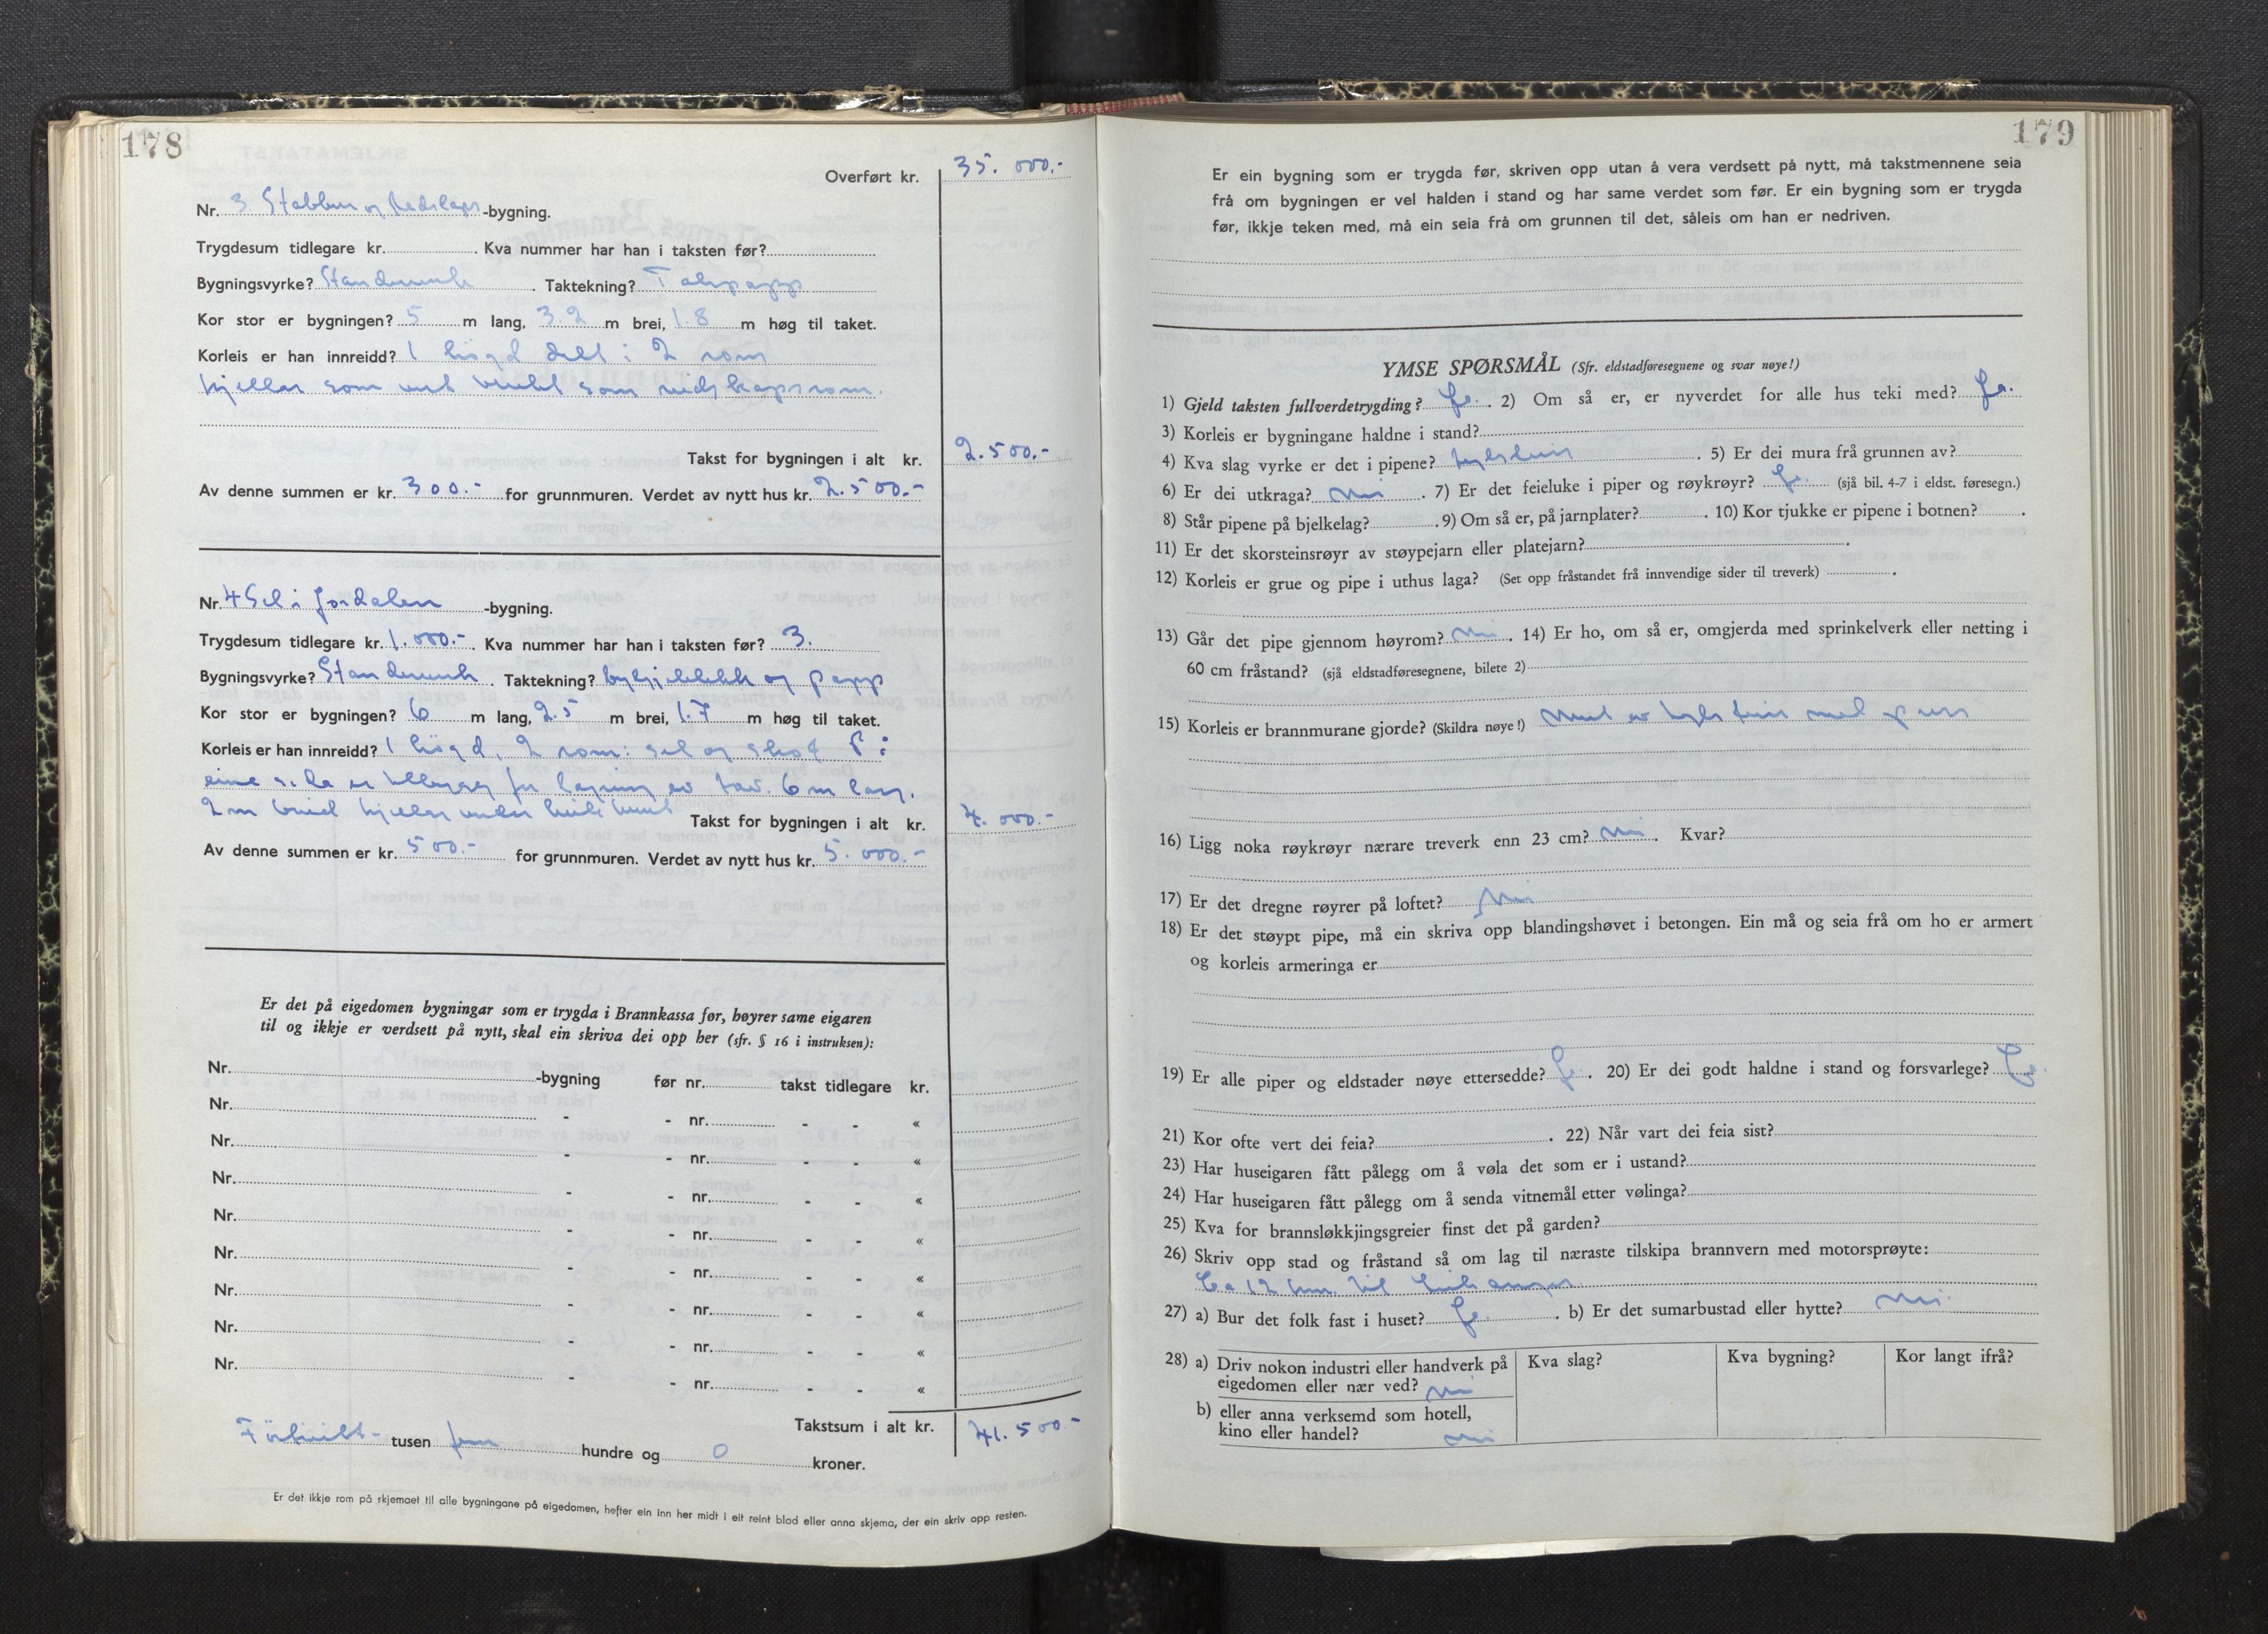 178
Overført kr. 35.000.-
Nr. 3 Stabbur og -bygning.
Trygdesum tidlegare kr. . Kva nummer har han i taksten før?
Bygningsvyrke? Standerverk . Taktekning? Takpapp
Kor stor er bygningen? 5 m lang, 3.2 m brei, 1.8 m høg til taket.
Korleis er han innreidd? 1 högd delt i 2 rom
kjellar som vert brukt som reidskapsrom.
Takst for bygningen i alt kr. 2.500.-
Av denne summen er kr. 300.- for grunnmuren. Verdet av nytt hus kr. 2.500.-
Nr. 4 Sel i Jordalen -bygning.
Trygdesum tidlegare kr. 1.000.- . Kva nummer har han i taksten før? 3.
Bygningsvyrke? Standerverk . Taktekning? bylgjeblekk og papp
Kor stor er bygningen? 6 m lang, 2.5 m brei, 1.7 m høg til taket.
Korleis er han innreidd? 1 högd, 2 rom: sel og skot På
eine sida er tilbygg for lagring av 6 m lang.
2 m breid kjellar under heile huset Takst for bygningen i alt kr. 4.000.-
Av denne summen er kr. 500.- for grunnmuren. Verdet av nytt hus kr. 5.000.-
Er det på eigedomen bygningar som er trygda i Brannkassa før, høyrer same eigaren
til og ikkje er verdsett på nytt, skal ein skriva dei opp her (sfr. § 16 i instruksen):
Nr. -bygning før nr. takst tidlegare kr.
Nr. - - nr. - - «
Nr. - - nr. - - «
Nr. - - nr. - - «
Nr. - - nr. - - «
Nr. - - nr. - - «
Nr. - - nr. - - «
Nr. - - nr. - - «
Nr. - - nr. - - «
Takstsum i alt kr. 41.500.-
Förtieitt- tusen fem hundre og 0 kroner.
Er det ikkje rom på skjemaet til alle bygningane på eigedomen, hefter ein inn her midt i eit reint blad eller anna skjema, der ein skriv opp resten.
179
Er ein bygning som er trygda før, skriven opp utan å vera verdsett på nytt, må takstmennene seia
frå om bygningen er vel halden i stand og har same verdet som før. Er ein bygning som er trygda
før, ikkje teken med, må ein seia frå om grunnen til det, såleis om han er nedriven.
YMSE SPØRSMÅL (Sfr. eldstadføresegnene og svar nøye!)
1) Gjeld taksten fullverdetrygding? Ja. . 2) Om så er, er nyverdet for alle hus teki med? Ja.
3) Korleis er bygningane haldne i stand?
4) Kva slag vyrke er det i pipene? teglstein . 5) Er dei mura frå grunnen av?
6) Er dei utkraga? nei . 7) Er det feieluke i piper og røykrøyr? Ja. (sjå bil. 4-7 i eldst. føresegn.)
8) Står pipene på bjelkelag? . 9) Om så er, på jarnplater? . 10) Kor tjukke er pipene i botnen? .
11) Er det skorsteinsrøyr av støypejarn eller platejarn? .
12) Korleis er grue og pipe i uthus laga? (Set opp fråstandet frå innvendige sider til treverk) .
13) Går det pipe gjennom høyrom? nei . 14) Er ho, om så er, omgjerda med sprinkelverk eller netting i
60 cm fråstand? (sjå eldstadføresegnene, bilete 2)
15) Korleis er brannmurane gjorde? (Skildra nøye!) Murt av teglstein med puss
16) Ligg noka røykrøyr nærare treverk enn 23 cm? nei . Kvar?
17) Er det dregne røyrer på loftet? Nei
18) Er det støypt pipe, må ein skriva opp blandingshøvet i betongen. Ein må og seia frå om ho er armert
og korleis armeringa er
19) Er alle piper og eldstader nøye ettersedde? Ja. . 20) Er dei godt haldne i stand og forsvarlege? Ja.
21) Kor ofte vert dei feia? . 22) Når vart dei feia sist?
23) Har huseigaren fått pålegg om å vøla det som er i ustand?
24) Har huseigaren fått pålegg om å senda vitnemål etter vølinga?
25) Kva for brannsløkkjingsgreier finst det på garden?
26) Skriv opp stad og fråstand så om lag til næraste tilskipa brannvern med motorsprøyte:
Ca 12 km. til Leikanger
27) a) Bur det folk fast i huset? Ja. . b) Er det sumarbustad eller hytte? nei.
28) a) Driv nokon industri eller handverk på eigedomen eller nær ved? nei Kva slag? Kva bygning? Kor langt ifrå?
b) eller anna verksemd som hotell,
kino eller handel? nei